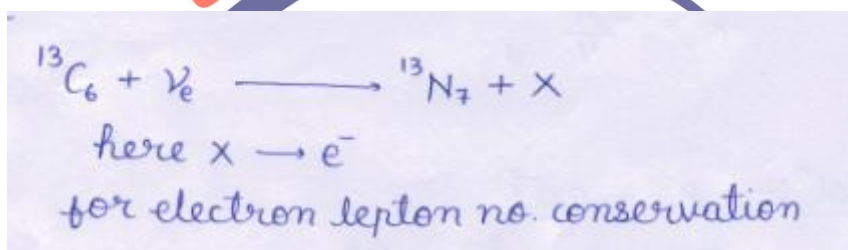 ¹³C₆ + νₑ ⟶ ¹³N₇ + X
here x → e⁻
for electron lepton no. conservation